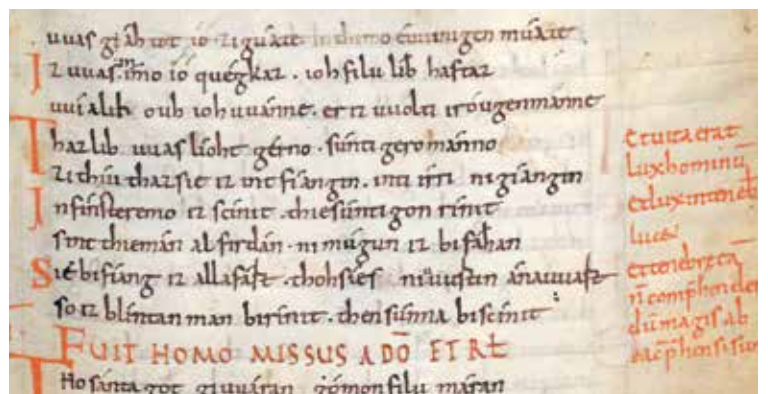 uuas giáhtot io zi guáte. in themo éuuinigen múate
Iz uuas in imo ió quégkaz. ioh filu lib haftaz
uuialih ouh ioh uuánne. er iz uuolti irougen mánne
Thaz lib uuas líoht gérno. súnti gero mánno
zi thiu thaz sie iz int fíangin. inti irri ni giangin
In fínsteremo iz scínit. thie súntigon rinit
sint thie mán al firdán. ni múgun iz bifáhan
Sie bifíang iz alla fárt. thoh sies ni uuurtun ána uuart
so iz blíntan man birinit. then súnna biscínit
FUIT HOMO MISSUS A DŌ ET RL
Tho sánta gót giuuáran gómon filu máran
Et uita erat
lux hominū
et lux in teneb
lucet
et tenebrę eā
n̄ comp̄hender
dū magis ab
ea cp̄hensi sun